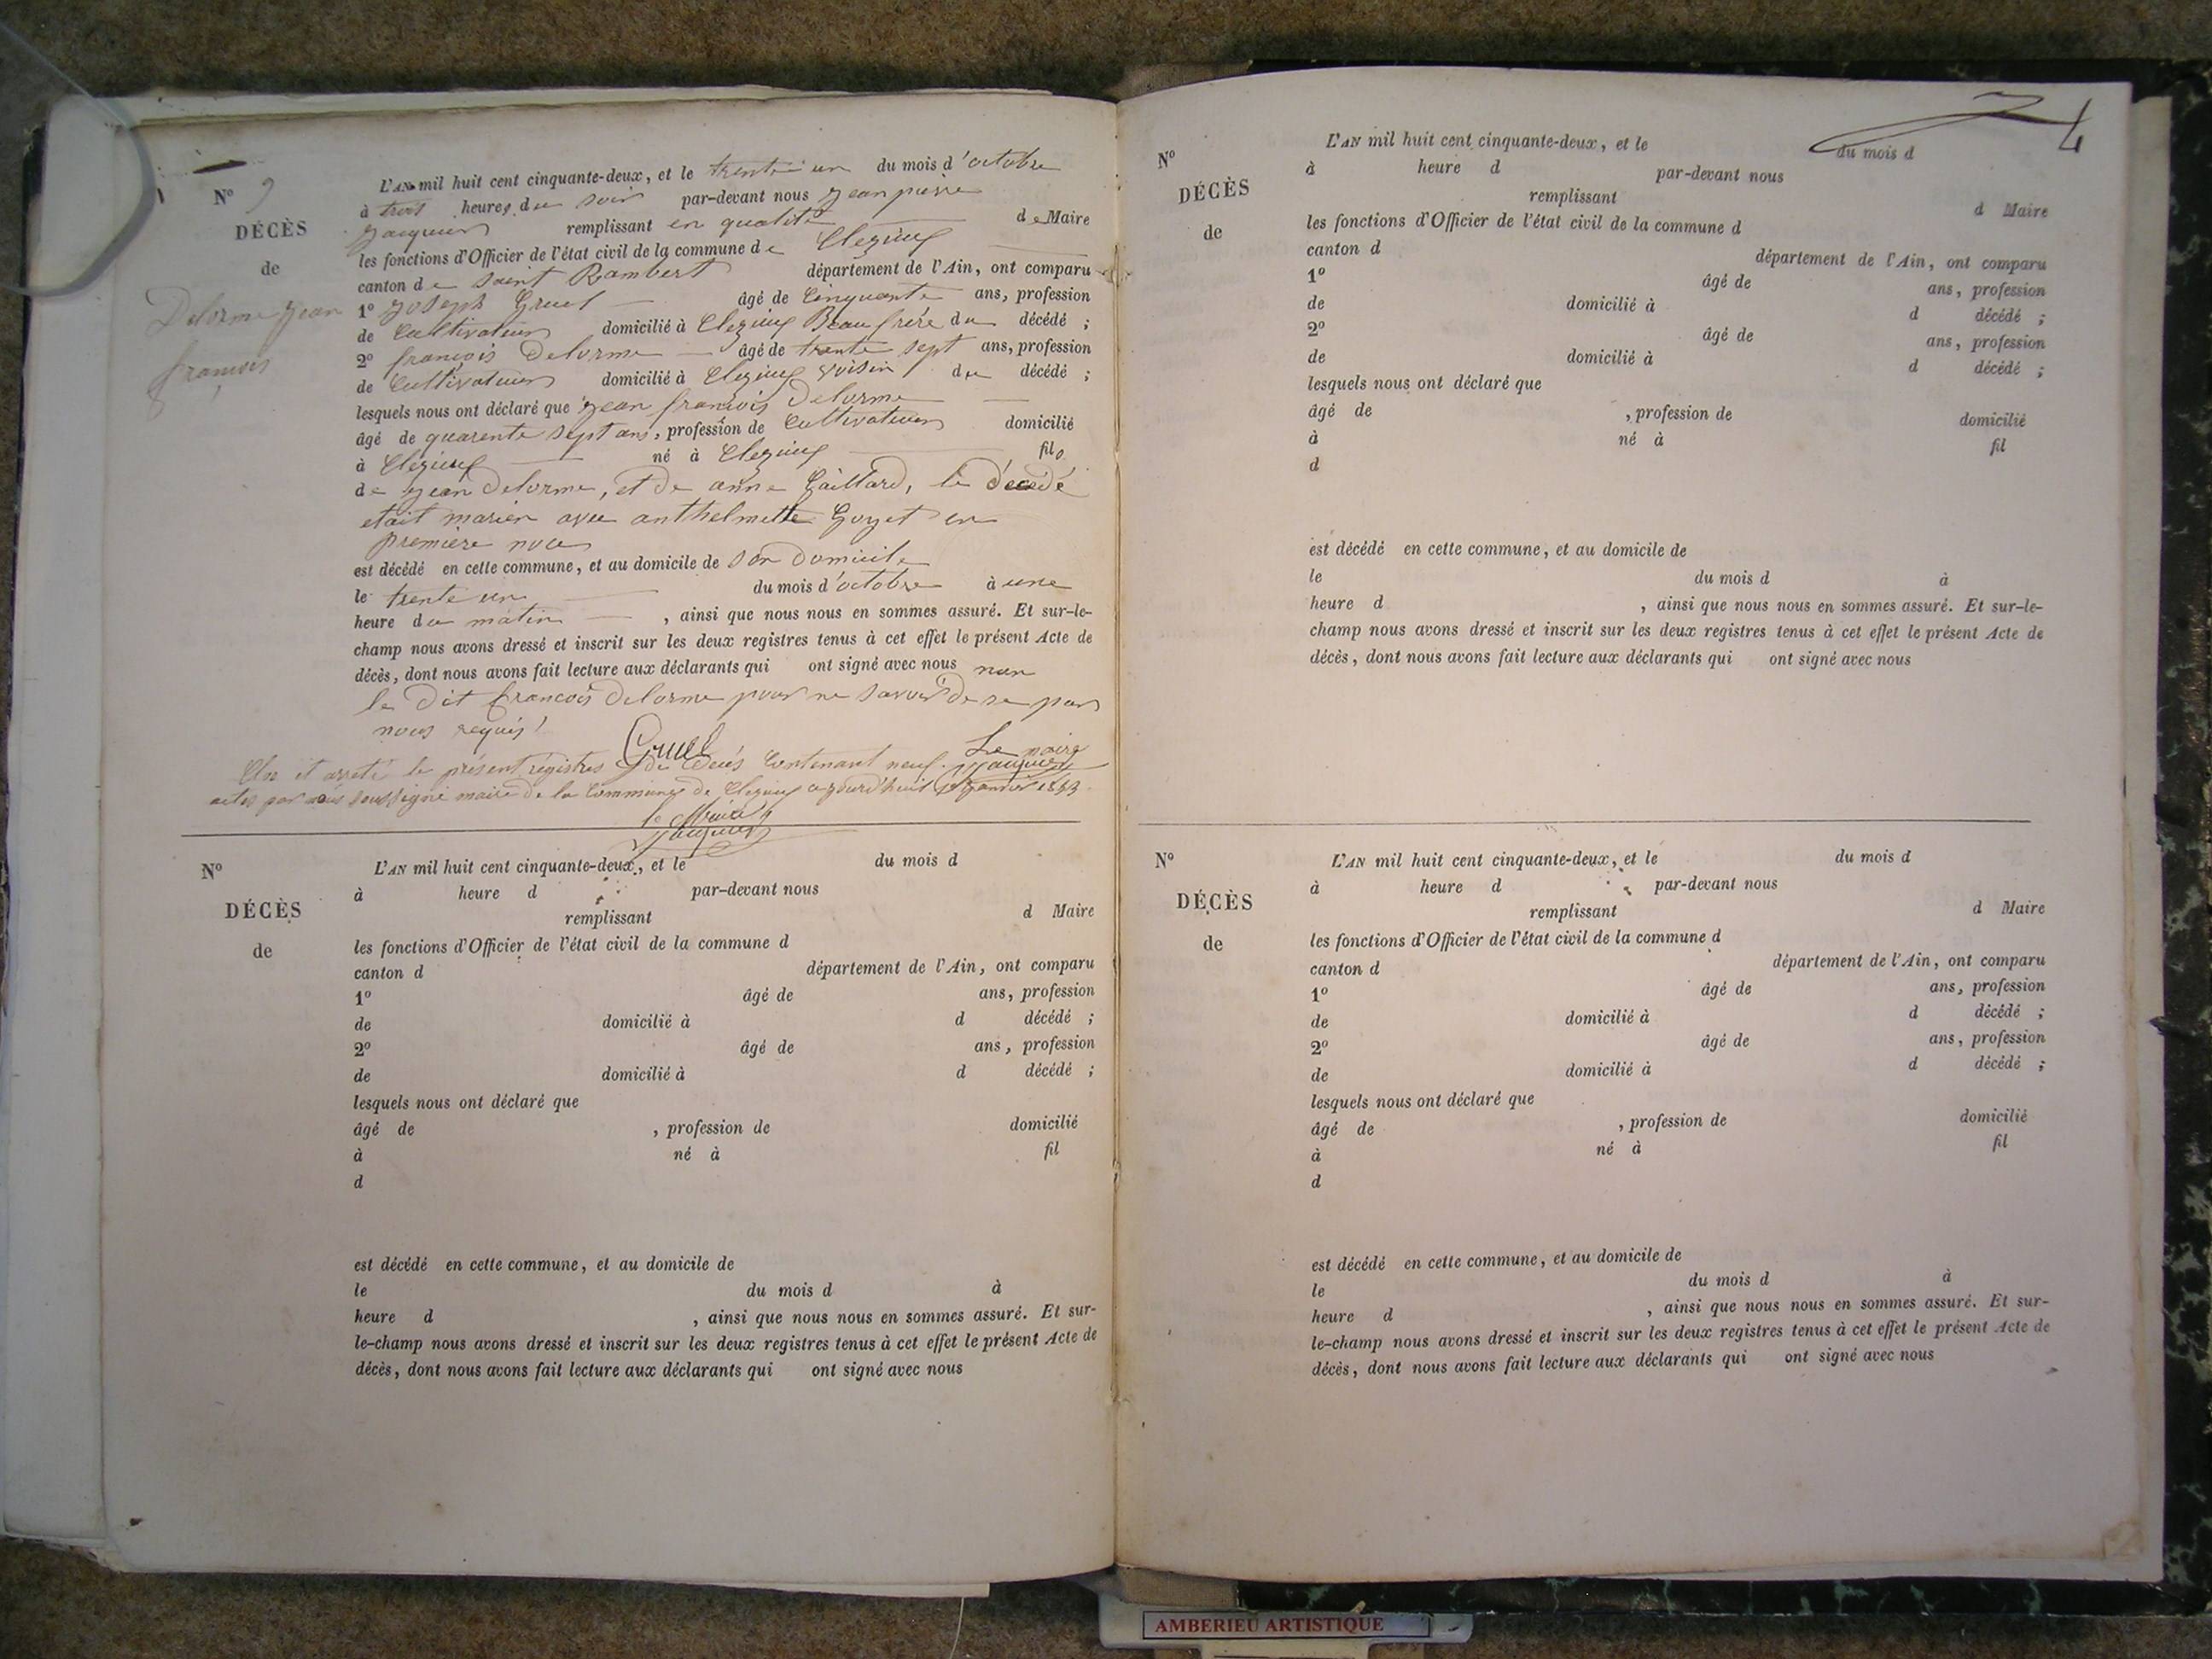 N° 9
DÉCÈS
de
Delorme jean
françois
L'AN mil huit cent cinquante-deux, et le trente un du mois d'octobre
à trois heures du soir par-devant nous jean pierre
jacquier remplissant en qualité de Maire
les fonctions d'Officier de l'état civil de la commune de Clezieux
canton de Saint Rambert département de l'Ain, ont comparu
1° joseph Gruel âgé de Cinquante ans, profession
de Cultivateur domicilié à Clezieux Beau frère du décédé ;
2° françois Delorme âgé de trente sept ans, profession
de Cultivateur domicilié à Clezieux voisin du décédé ;
lesquels nous ont déclaré que jean françois Delorme
âgé de quarente sept ans, profession de Cultivateur domicilié
à Clezieux né à Clezieux fils
de jean Delorme, et de anne Gaillard, le décédé
etait marier avec anthelmette Goyet en
première noce
est décédé en cette commune, et au domicile de son domicile
le trente un du mois d'octobre à une
heure du matin, ainsi que nous nous en sommes assuré. Et sur-le-
champ nous avons dressé et inscrit sur les deux registres tenus à cet effet le présent Acte de
décès, dont nous avons fait lecture aux déclarants qui ont signé avec nous non
le dit françois Delorme pour ne savoir de ce par
nous requis!
Gruel Le maire
jacquier
Clos et arreté le présent registres de décès Contenant neuf
actes par nous soussigné maire de la Commune de Clezieux aujourd'huit janvier 1853
le Maire
jacquier
N°
DÉCÈS
de
L'AN mil huit cent cinquante-deux, et le du mois d
à heure d par-devant nous
remplissant d Maire
les fonctions d'Officier de l'état civil de la commune d
canton d département de l'Ain, ont comparu
1° âgé de ans, profession
de domicilié à d décédé ;
2° âgé de ans, profession
de domicilié à d décédé ;
lesquels nous ont déclaré que
âgé de , profession de domicilié
à né à fil
d
est décédé en cette commune, et au domicile de
le du mois d à
heure d , ainsi que nous nous en sommes assuré. Et sur-
le-champ nous avons dressé et inscrit sur les deux registres tenus à cet effet le présent Acte de
décès, dont nous avons fait lecture aux déclarants qui ont signé avec nous
4
N°
DÉCÈS
de
L'AN mil huit cent cinquante-deux, et le du mois d
à heure d par-devant nous
remplissant d Maire
les fonctions d'Officier de l'état civil de la commune d
canton d département de l'Ain, ont comparu
1° âgé de ans, profession
de domicilié à d décédé ;
2° âgé de ans, profession
de domicilié à d décédé ;
lesquels nous ont déclaré que
âgé de , profession de domicilié
à né à fil
d
est décédé en cette commune, et au domicile de
le du mois d à
heure d , ainsi que nous nous en sommes assuré. Et sur-le-
champ nous avons dressé et inscrit sur les deux registres tenus à cet effet le présent Acte de
décès, dont nous avons fait lecture aux déclarants qui ont signé avec nous
N°
DÉCÈS
de
L'AN mil huit cent cinquante-deux, et le du mois d
à heure d par-devant nous
remplissant d Maire
les fonctions d'Officier de l'état civil de la commune d
canton d département de l'Ain, ont comparu
1° âgé de ans, profession
de domicilié à d décédé ;
2° âgé de ans, profession
de domicilié à d décédé ;
lesquels nous ont déclaré que
âgé de , profession de domicilié
à né à fil
d
est décédé en cette commune, et au domicile de
le du mois d à
heure d , ainsi que nous nous en sommes assuré. Et sur-
le-champ nous avons dressé et inscrit sur les deux registres tenus à cet effet le présent Acte de
décès, dont nous avons fait lecture aux déclarants qui ont signé avec nous
AMBERIEU ARTISTIQUE